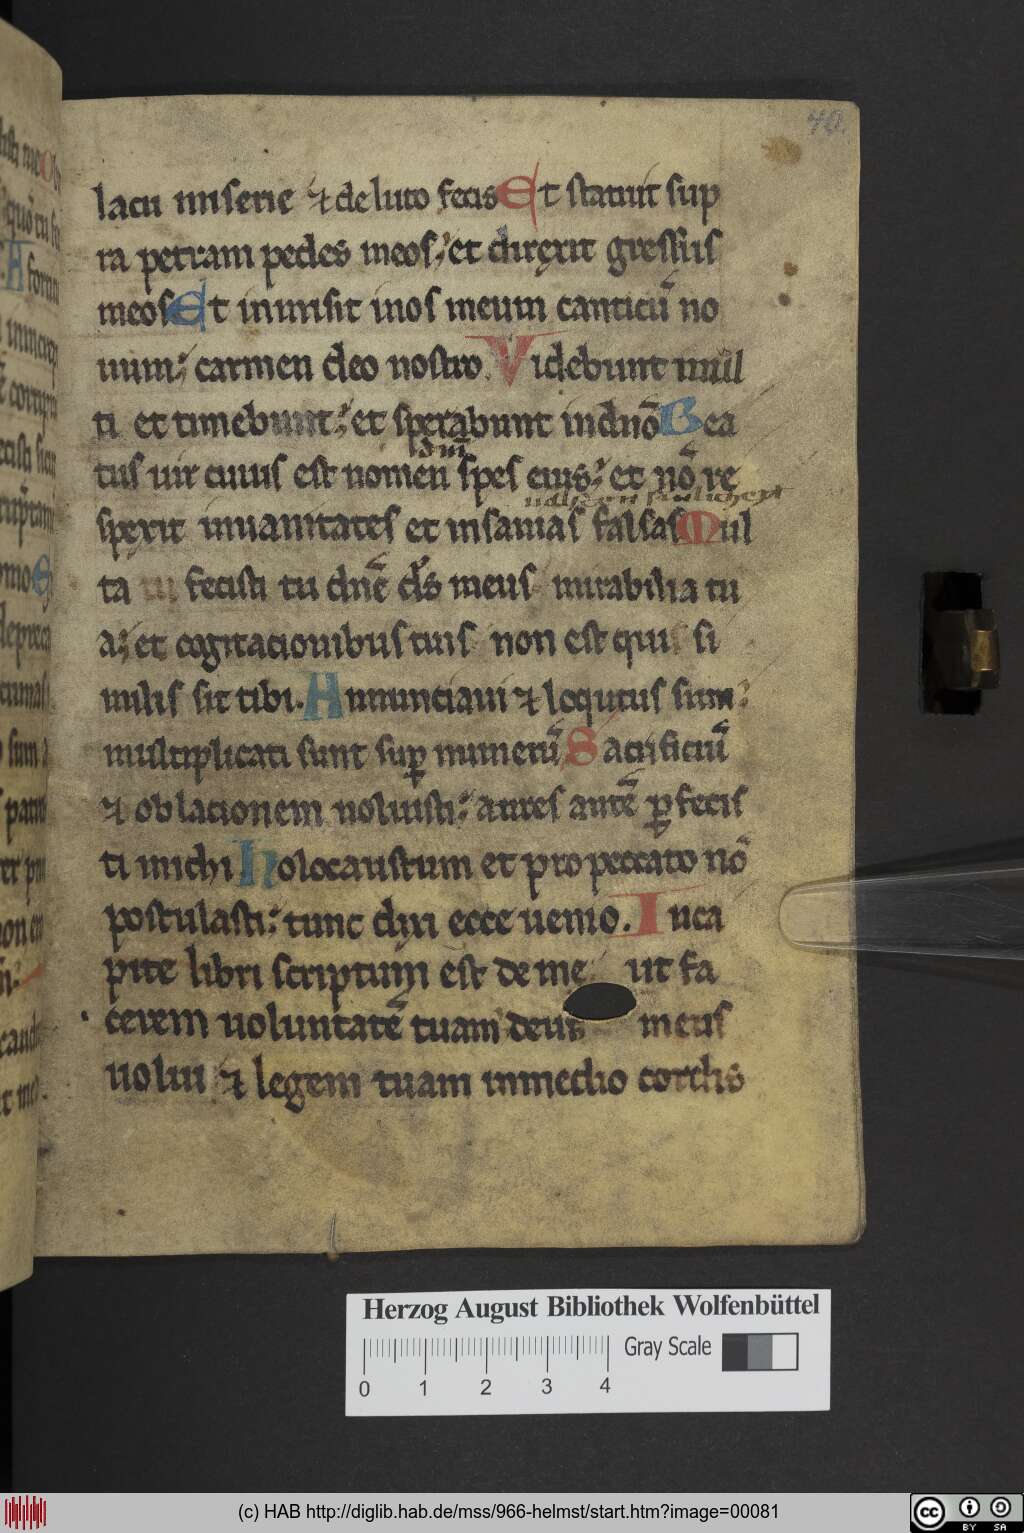 40.
lacu miserie ⁊ de luto fecis Et statuit sup
ra petram pedes meos; et direxit gressus
meos Et inmisit inos meum canticū no
uum; carmen deo nostro. Videbunt mul
ti et timebunt; et sperabunt indnō Bea
dm̄
tus uir cuius est nomen spes eius; et nō re
spexit inuanitates et insanias falsas Mul
ta tu fecisti tu dnē ds meus mirabilia tu
a; et cogitacionibus tuis non est quis si
milis sit tibi. Annunciaui ⁊ loqutus sum;
multiplicati sunt sup numerū Sacrificiū
⁊ oblacionem noluisti; aures autē pfecis
ti michi Holocaustum et pro peccato nō
postulasti; tunc dixi ecce uenio. In ca
pite libri scriptum est de me ut fa
cerem uoluntatē tuam deus meus
uolui ⁊ legem tuam inmedio cordis
Herzog August Bibliothek Wolfenbüttel
Gray Scale
0 1 2 3 4
(c) HAB http://diglib.hab.de/mss/966-helmst/start.htm?image=00081
cc BY SA